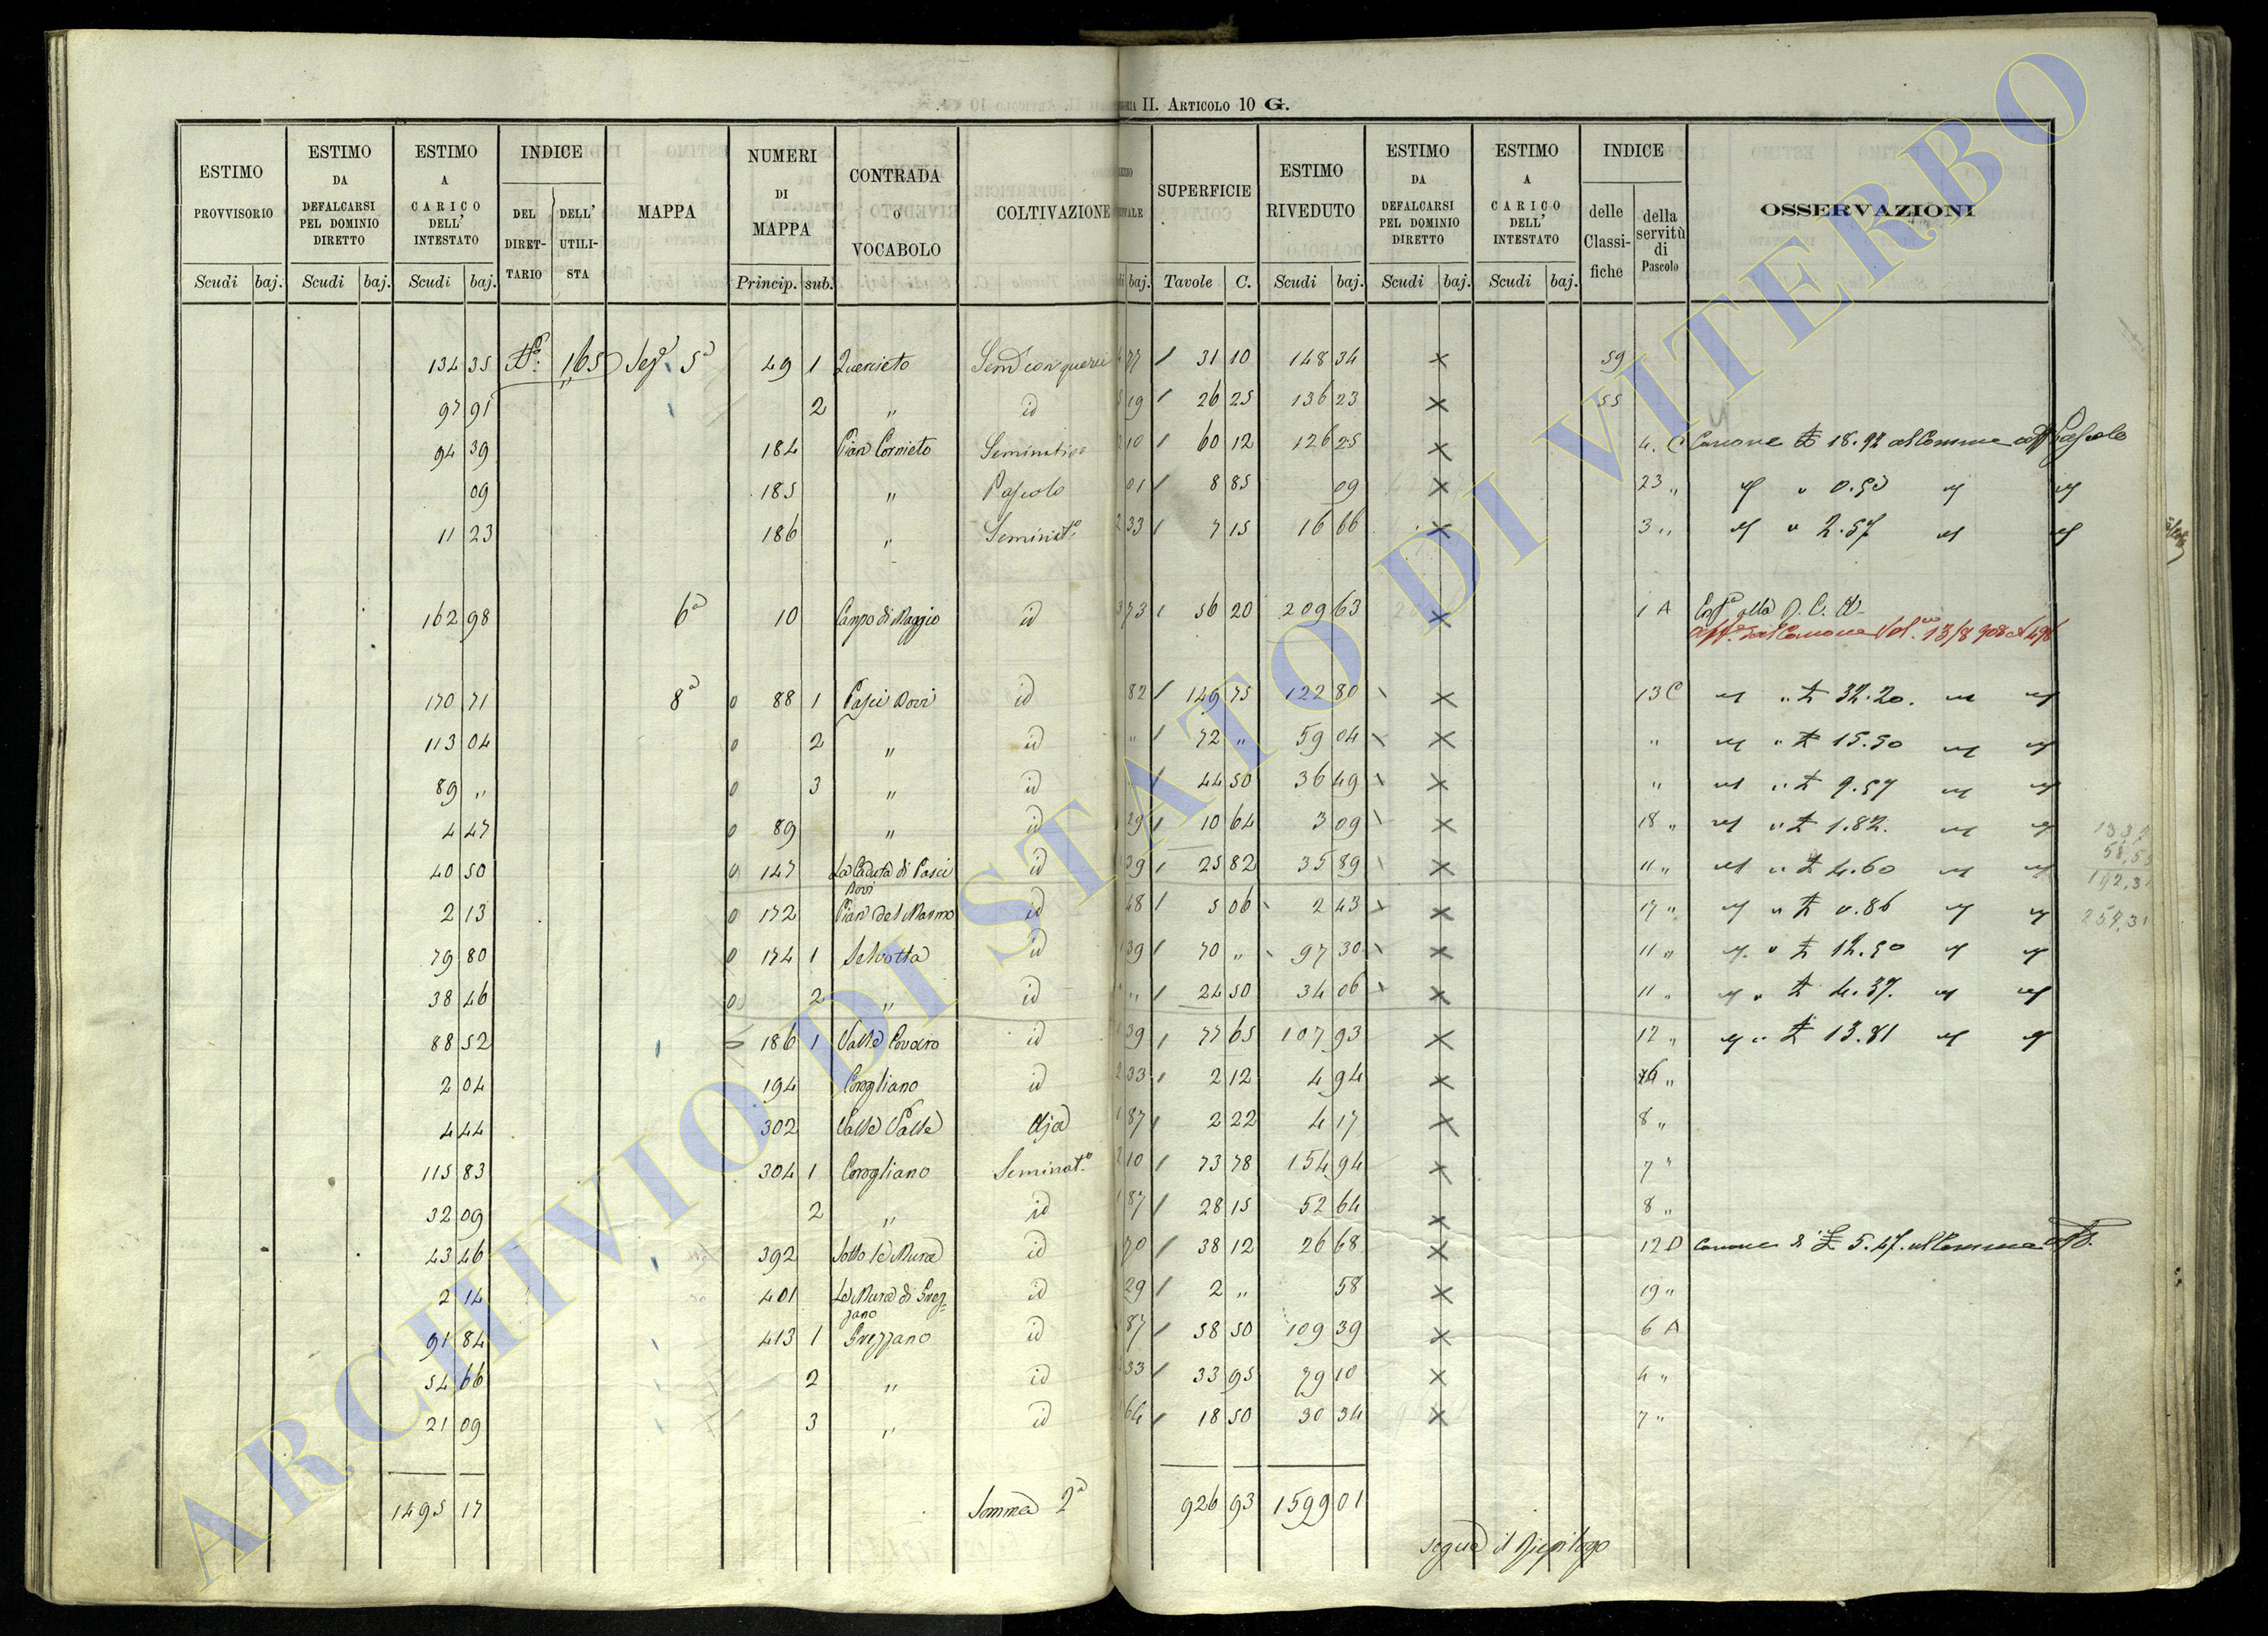 II. ARTICOLO 10 G.
ESTIMO PROVVISORIO | ESTIMO DA DEFALCARSI PEL DOMINIO DIRETTO | ESTIMO A CARICO DELL' INTESTATO | INDICE DEL DIRETTARIO | DELL' UTILISTA | MAPPA | NUMERI DI MAPPA | CONTRADA o VOCABOLO | COLTIVAZIONE | SUPERFICIE | ESTIMO RIVEDUTO | ESTIMO DA DEFALCARSI PEL DOMINIO DIRETTO | ESTIMO A CARICO DELL' INTESTATO | INDICE delle Classifiche | della servitù di Pascolo | OSSERVAZIONI
Scudi baj. Scudi baj. Scudi baj. Princip. sub. baj. Tavole C. Scudi baj. Scudi baj. Scudi baj.
134 35 165 Sez. 5a 49 1 Querceto 77 31 10 148 34 × 59
97 91 2 " id 19 26 25 136 23 × 55
94 39 184 Pian Cornieto Seminativo 10 60 12 126 25 × 4. C Canone 18.92 al Comune Pascolo
09 185 " Pascolo 01 8 85 09 × 23 " " 0.50
11 23 186 " Seminat.o 33 7 15 16 66 × 3 " " 2.57
162 98 6a 10 Campo di Maggio id 73 56 20 209 63 × 1 A
170 71 8a 0 88 1 Pasci Bovi id 82 149 75 122 80 × 13 C " 32.20.
113 04 0 2 " id " 72 " 59 04 × " " 15.50
89 " 0 3 " id 44 50 36 49 × " " 9.57
4 47 0 89 " id 29 10 64 3 09 × 18 " " 1.82.
40 50 0 147 La Caduta di Pasci Bovi id 39 25 82 35 89 × 11 " " 4.60
2 13 0 172 Pian del Marmo id 48 5 06 2 43 × 17 " " 0.86
79 80 0 174 1 Selvotta id 39 70 " 97 30 × 11 " " 12.50
38 46 0 2 " id " 24 50 34 06 × 11 " " 4.37.
88 52 0 186 1 Valle id 39 77 65 107 93 × 12 " " 13.81
2 04 194 Corogliano id 33 2 12 4 94 × "
4 44 302 Valle Aja 87 2 22 4 17 × 8 "
115 83 304 1 Corogliano Seminat.o 10 73 78 154 94 × 7 "
32 09 2 " id 87 28 15 52 64 × 8 "
43 46 392 Sotto le Mura id 70 38 12 26 68 × 12 D Canone di 5.47. al Comune
2 14 401 Le Mura di id 29 2 " 58 × 19 "
91 84 413 1 id 87 58 50 109 39 × 6 A
54 66 2 " id 33 33 95 79 10 × 4 "
21 09 3 " id 64 18 50 30 34 × 7 "
1495 17 Somma 2a 926 93 1599 01
segue il Riepilogo
ARCHIVIO DI STATO DI VITERBO